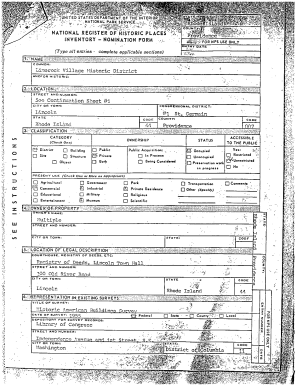 UNITED STATES DEPARTMENT OF THE INTERIOR
NATIONAL PARK SERVICE
NATIONAL REGISTER OF HISTORIC PLACES
INVENTORY - NOMINATION FORM
(Type all entries - complete applicable sections)
Providence
FOR NPS USE ONLY
1. NAME
COMMON:
Limerock Village Historic District
AND/OR HISTORIC:
2. LOCATION
STREET AND NUMBER:
See Continuation Sheet #1
CITY OR TOWN: CONGRESSIONAL DISTRICT:
Lincoln #1 St. Germain
STATE CODE COUNTY CODE
Rhode Island 44 Providence 007
3. CLASSIFICATION
CATEGORY
(Check One) OWNERSHIP STATUS ACCESSIBLE
TO THE PUBLIC
District Building Public Public Acquisition: Occupied Yes:
Site Structure Private In Process Unoccupied Restricted
Object Both Being Considered Preservation work in progress Unrestricted
No
PRESENT USE (Check One or More as Appropriate)
Agricultural Government Park Transportation Comments
Commercial Industrial Private Residence Other (Specify)
Educational Military Religious
Entertainment Museum Scientific
4. OWNER OF PROPERTY
OWNER'S NAME:
Multiple
STREET AND NUMBER:
CITY OR TOWN: STATE: CODE
5. LOCATION OF LEGAL DESCRIPTION
COURTHOUSE, REGISTRY OF DEEDS, ETC:
Registry of Deeds, Lincoln Town Hall
STREET AND NUMBER:
100 Old River Road
CITY OR TOWN: STATE CODE
Lincoln Rhode Island 44
6. REPRESENTATION IN EXISTING SURVEYS
TITLE OF SURVEY:
Historic American Buildings Survey
DATE OF SURVEY: Federal State County Local
DEPOSITORY FOR SURVEY RECORDS:
Library of Congress
STREET AND NUMBER:
Independence Avenue and 1st Street, S.E.
CITY OR TOWN: STATE: CODE
Washington District of Columbia 11
SEE INSTRUCTIONS